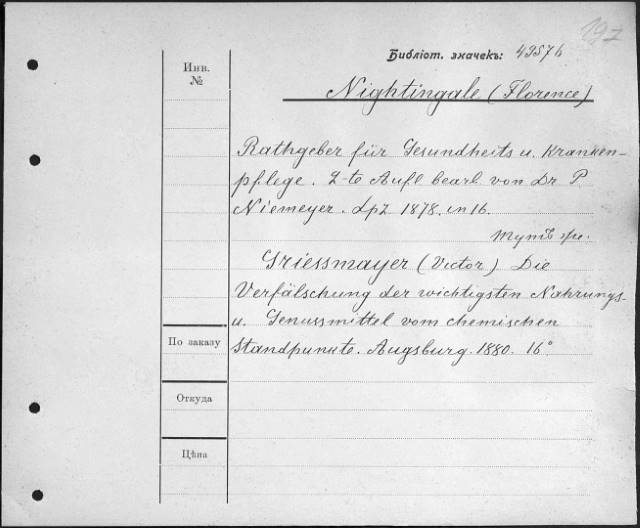 197
Библіот. значекъ: 49576
Инв.
№
Nightingale (Florence)
Rathgeber für Gesundheits u. Kranken-
pflege. 2-te Aufl bearb. von Dr P
Niemeyer. Lpz. 1878. in 16.
Griessmayer (Victor) Die
Verfälschung der wichtigsten Nahrungs-
u. Genussmittel vom chemischen
Standpunkte. Augsburg. 1880. 16°
По заказу
Откуда
Цѣна